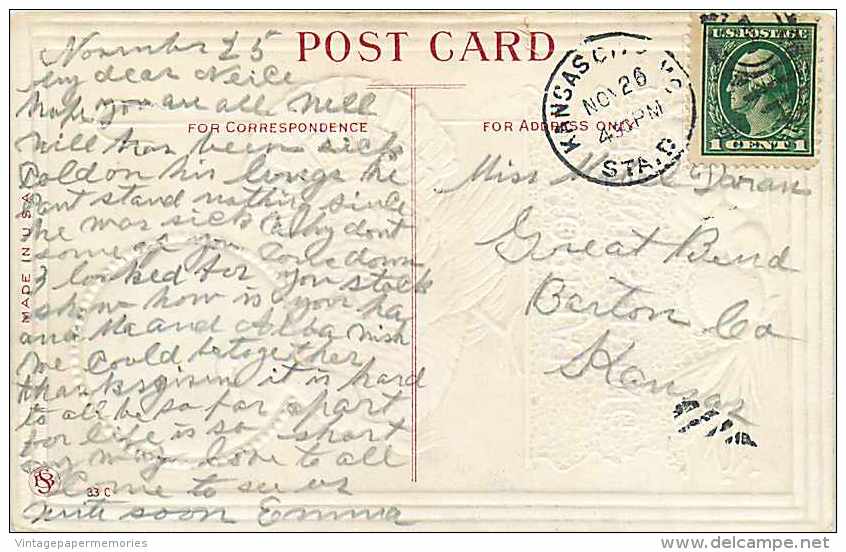 POST CARD
FOR CORRESPONDENCE
FOR ADDRESS ONLY
MADE IN U.S.A.
November 25
My dear Neice
hope you are all well
Will has been sick
Cold on his lungs he
Cant stand nothing since
he was sick Why dont
some of you Come down
I looked for you stock
show how is your Pa
and Ma and Alba wish
we Could be together
thanksgiving it is hard
to all be so far apart
for life is so short
love to all
Come to see us
write soon Emma
Miss Doran
Great Bend
Barton Co
Kansas
KANSAS CITY
NOV 26
PM
STA. C
U.S. POSTAGE
1 CENT 1
33 C
Vintagepapermemories
www.delcampe.net